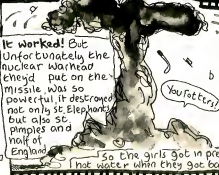 It worked! But
Unfortunately the
nuclear warhead
they'd put on the
missile, was so
powerful, it destroyed
not only St. Elephant
but also St.
pimples and
half of
England
You Totters!
So the girls got in pre
hot water when they got ba